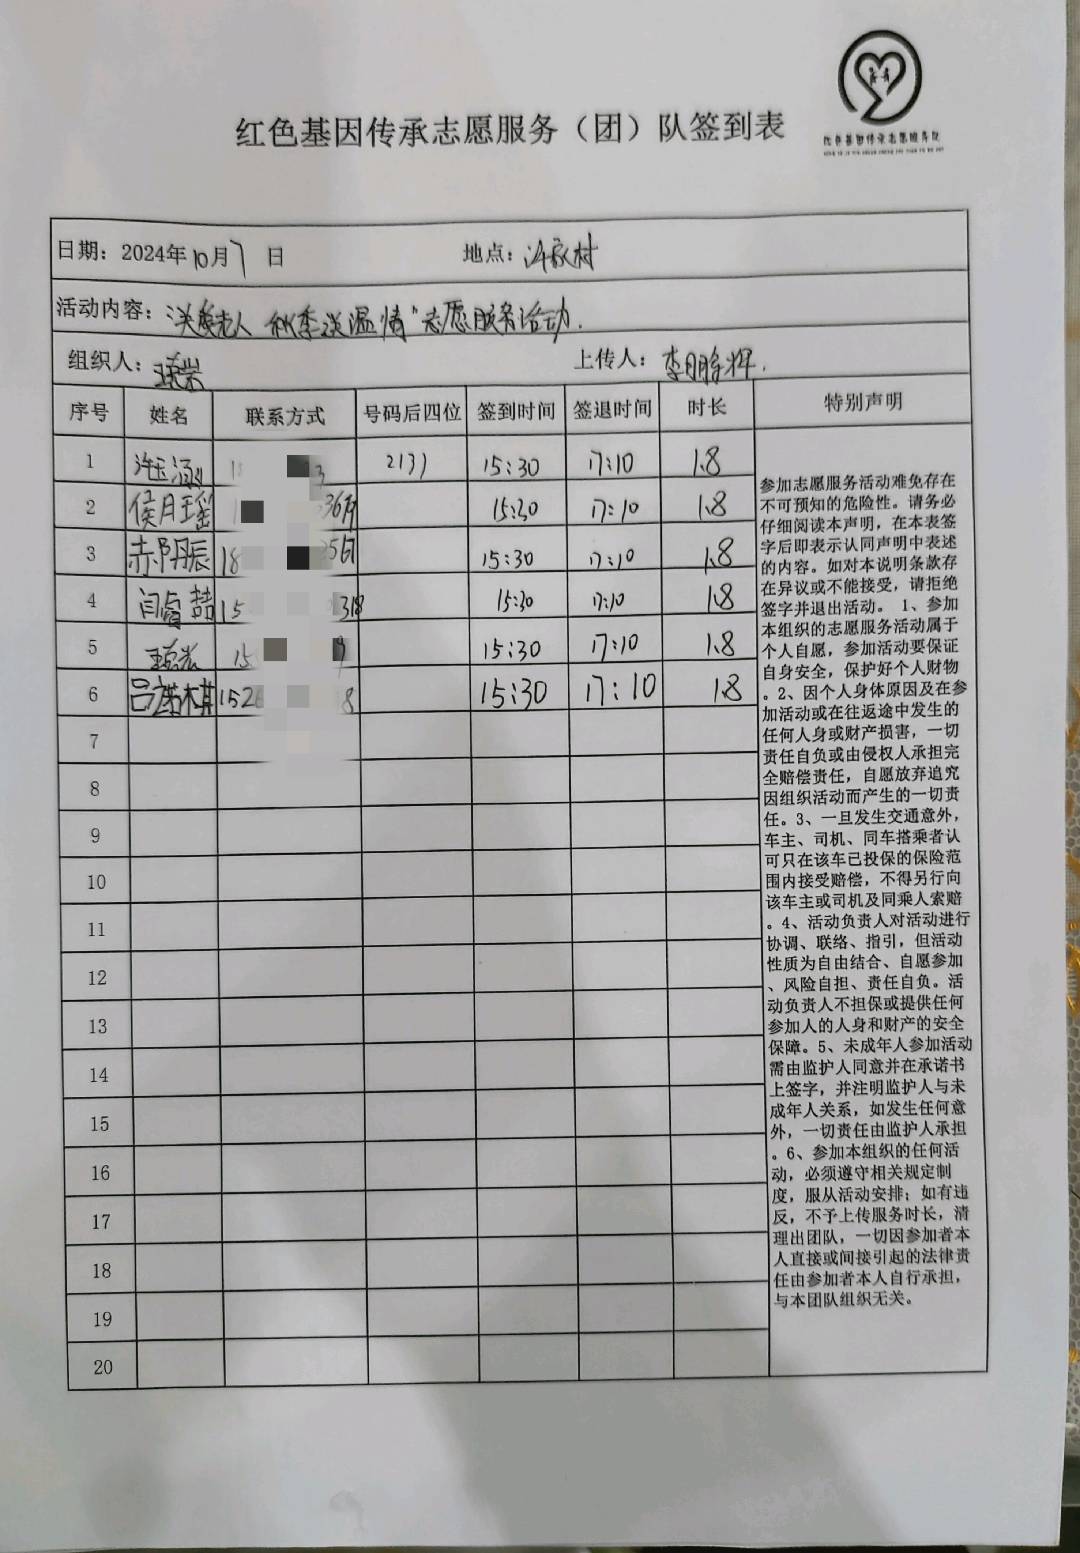 红色基因传承志愿服务（团）队签到表
红色基因传承志愿服务队
日期：2024年10月7日 地点：许家村
活动内容：关爱老人 秋季送温情"志愿服务活动.
组织人： 上传人：李鹏辉.
序号 姓名 联系方式 号码后四位 签到时间 签退时间 时长 特别声明
1 许玉涵 18 3 2131 15:30 17:10 1.8
2 侯月瑶 1 15:30 17:10 1.8
3 赤阝丹辰 18 15:30 17:10 1.8
4 闫睿喆 15 318 15:30 17:10 1.8
5 15 15:30 17:10 1.8
6 吕诺木其 152 8 15:30 17:10 1.8
7
8
9
10
11
12
13
14
15
16
17
18
19
20
参加志愿服务活动难免存在
不可预知的危险性。请务必
仔细阅读本声明，在本表签
字后即表示认同声明中表述
的内容。如对本说明条款存
在异议或不能接受，请拒绝
签字并退出活动。 1、参加
本组织的志愿服务活动属于
个人自愿，参加活动要保证
自身安全，保护好个人财物
。2、因个人身体原因及在参
加活动或在往返途中发生的
任何人身或财产损害，一切
责任自负或由侵权人承担完
全赔偿责任，自愿放弃追究
因组织活动而产生的一切责
任。3、一旦发生交通意外，
车主、司机、同车搭乘者认
可只在该车已投保的保险范
围内接受赔偿，不得另行向
该车主或司机及同乘人索赔
。4、活动负责人对活动进行
协调、联络、指引，但活动
性质为自由结合、自愿参加
、风险自担、责任自负。活
动负责人不担保或提供任何
参加人的人身和财产的安全
保障。5、未成年人参加活动
需由监护人同意并在承诺书
上签字，并注明监护人与未
成年人关系，如发生任何意
外，一切责任由监护人承担
。6、参加本组织的任何活
动，必须遵守相关规定制
度，服从活动安排；如有违
反，不予上传服务时长，清
理出团队，一切因参加者本
人直接或间接引起的法律责
任由参加者本人自行承担，
与本团队组织无关。